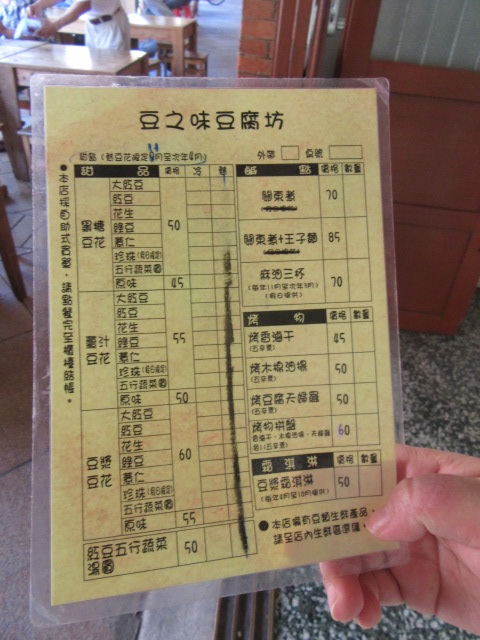 豆之味豆腐坊
甜點(熱豆花限定9月至次年4月)
外帶 桌號
●本店採自助式買單,請點餐完至櫃檯結帳。
甜品 價格 冷 熱
黑糖豆花
大紅豆
紅豆
花生
綠豆
薏仁
珍珠(假日限定)
五行蔬菜圓
50
原味 45
薑汁豆花
大紅豆
紅豆
花生
綠豆
薏仁
珍珠(假日限定)
五行蔬菜圓
55
原味 50
豆漿豆花
大紅豆
紅豆
花生
綠豆
薏仁
珍珠(假日限定)
五行蔬菜圓
60
原味 55
紅豆五行蔬菜湯圓 50
鹹點 價格 數量
關東煮 70
關東煮+王子麵 85
麻油三杯 70
(每年11月至次年3月)
(假日提供)
烤物 價格 數量
烤香滷干 45
(五辛素)
烤木燒油揚 50
(五辛素)
烤豆腐天婦羅 50
(五辛素)
烤物拼盤 60
香滷干、木燒油揚、天婦羅
(五辛素)
霜淇淋 價格 數量
豆漿霜淇淋 50
(每年4月至10月提供)
●本店備有豆類生鮮產品,
請至店內生鮮區選購。